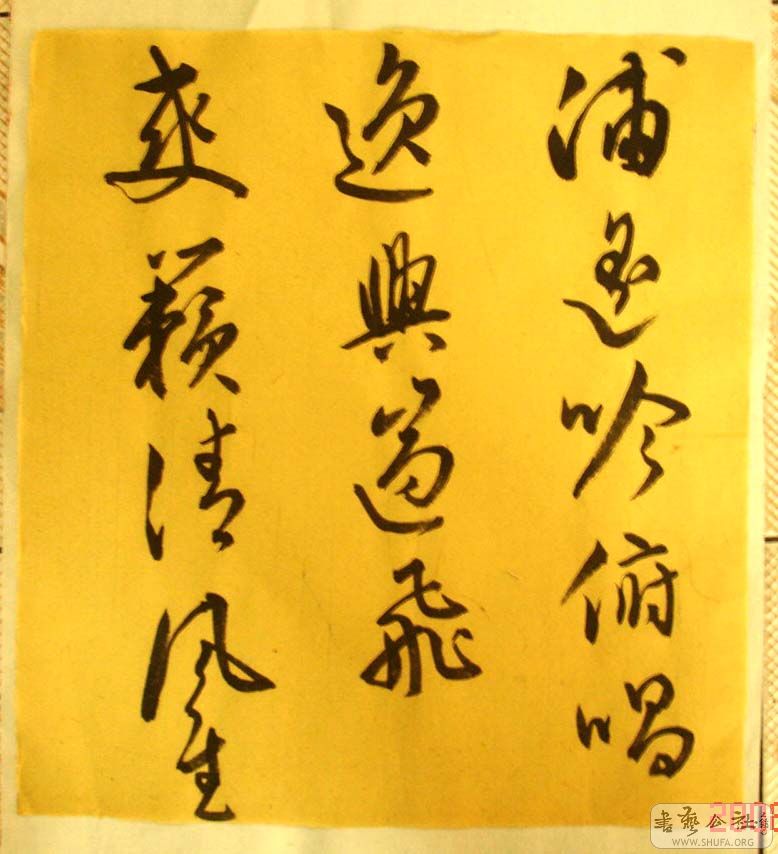 浦遥吟俯唱
逸興遄飛
爽籟清風生
書藝公社
WWW.SHUFA.ORG